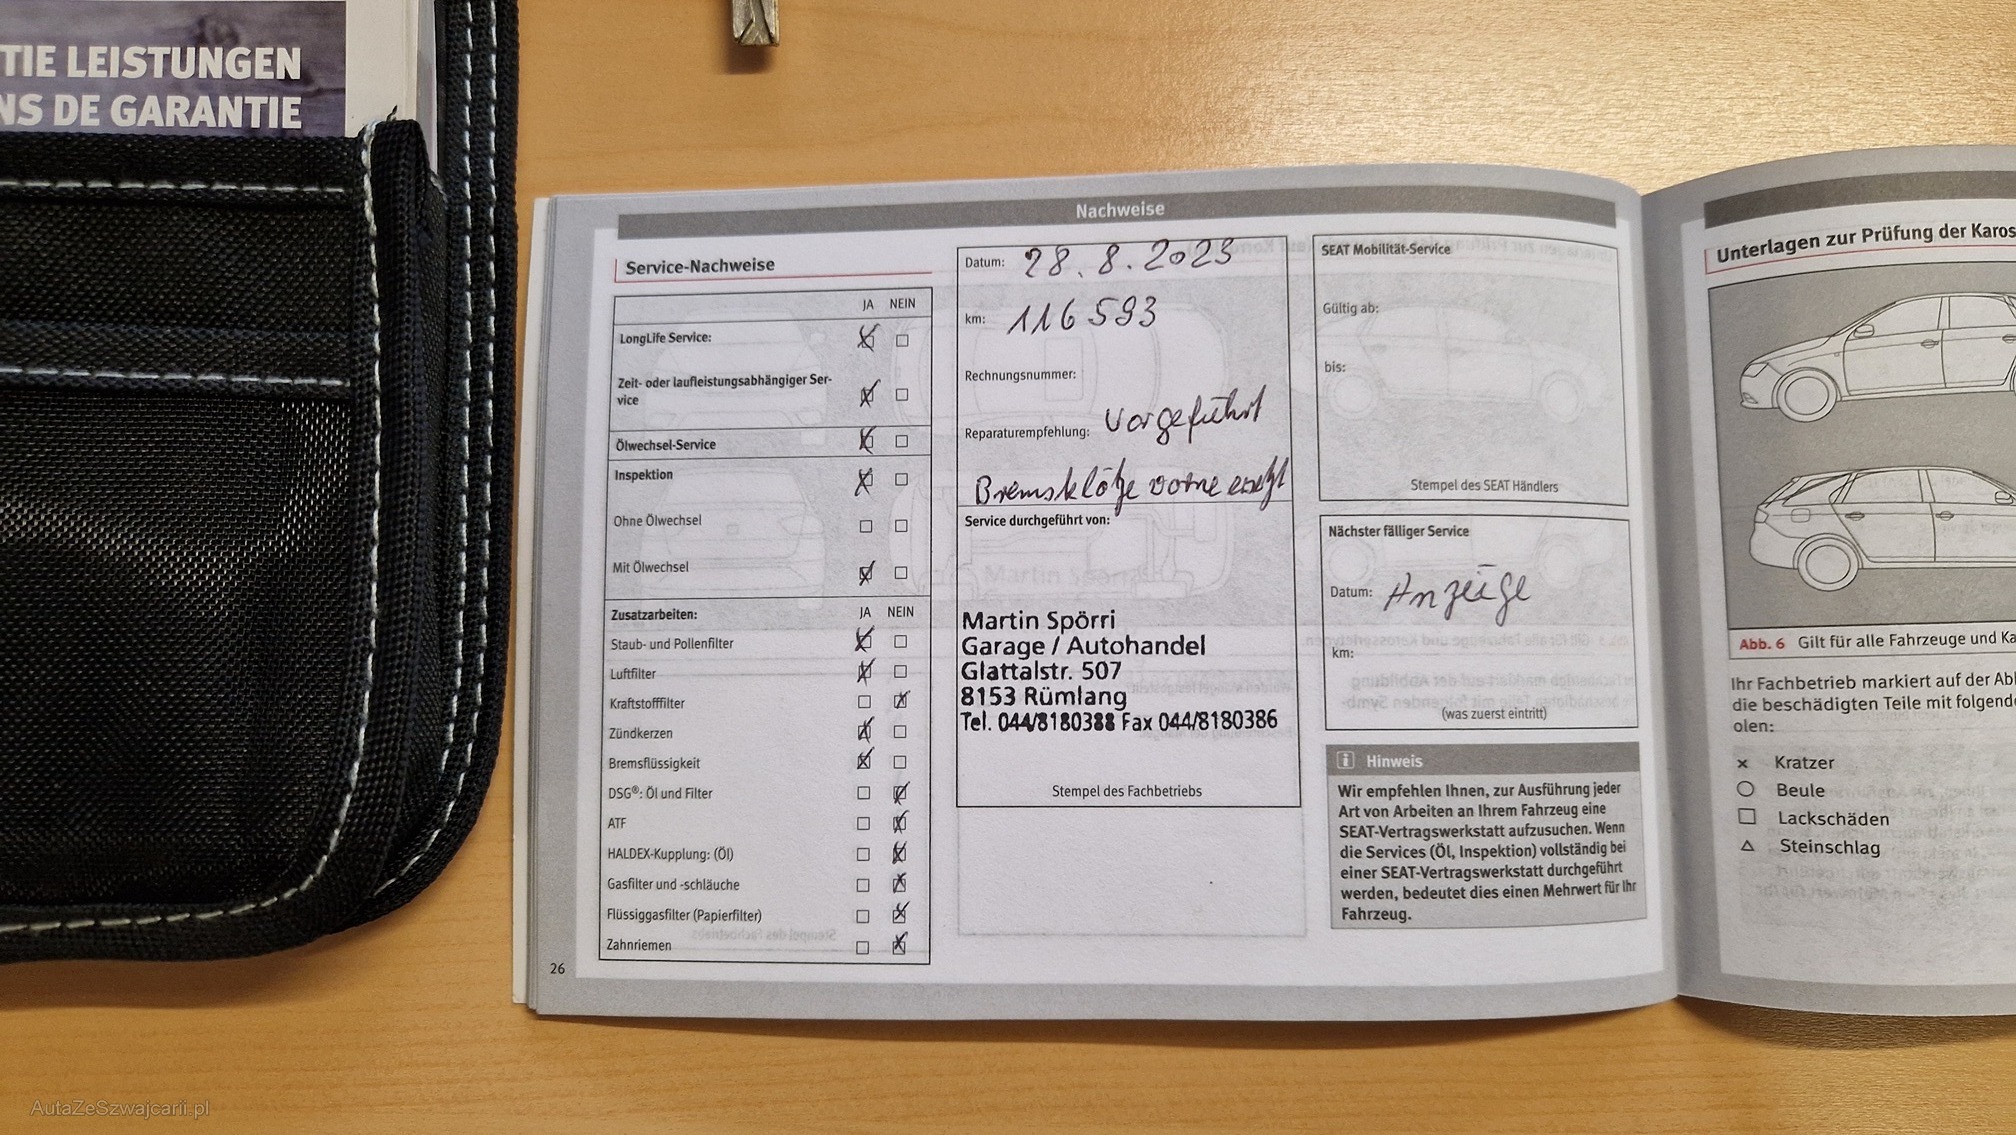 TIE LEISTUNGEN
NS DE GARANTIE
Nachweise
Service-Nachweise
JA NEIN
LongLife Service:
Zeit- oder laufleistungsabhängiger Ser-
vice
Ölwechsel-Service
Inspektion
Ohne Ölwechsel
Mit Ölwechsel
Zusatzarbeiten: JA NEIN
Staub- und Pollenfilter
Luftfilter
Kraftstofffilter
Zündkerzen
Bremsflüssigkeit
DSG®: Öl und Filter
ATF
HALDEX-Kupplung: (Öl)
Gasfilter und -schläuche
Flüssiggasfilter (Papierfilter)
Zahnriemen
26
Datum: 28.8.2023
km: 116593
Rechnungsnummer:
Reparaturempfehlung: Vorgeführt
Bremsklötze vorne ersetzt
Service durchgeführt von:
Martin Spörri
Garage / Autohandel
Glattalstr. 507
8153 Rümlang
Tel. 044/8180388 Fax 044/8180386
Stempel des Fachbetriebs
SEAT Mobilität-Service
Gültig ab:
bis:
Stempel des SEAT Händlers
Nächster fälliger Service
Datum: Anzeige
km:
(was zuerst eintritt)
i Hinweis
Wir empfehlen Ihnen, zur Ausführung jeder
Art von Arbeiten an Ihrem Fahrzeug eine
SEAT-Vertragswerkstatt aufzusuchen. Wenn
die Services (Öl, Inspektion) vollständig bei
einer SEAT-Vertragswerkstatt durchgeführt
werden, bedeutet dies einen Mehrwert für Ihr
Fahrzeug.
Unterlagen zur Prüfung der Karos
Abb. 6 Gilt für alle Fahrzeuge und Ka
Ihr Fachbetrieb markiert auf der Ab
die beschädigten Teile mit folgend
olen:
× Kratzer
○ Beule
□ Lackschäden
△ Steinschlag
AutaZeSzwajcarii.pl